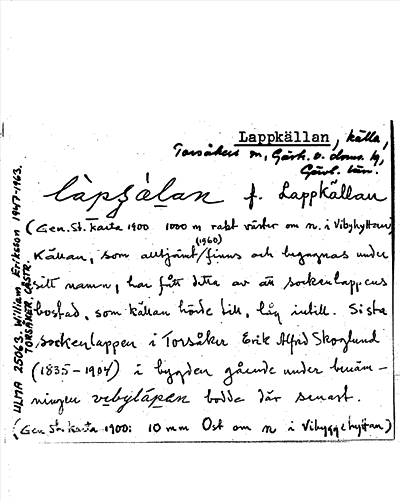 Lappkällan, källa,
Torsåkers sn, Gästr. ö. doms. hg,
Gävl. län.
làpςä́lan f. Lappkällan
(Gen. St. karta 1900 1000 m rakt väster om n. i Vibyhyttan)
(1960)
Källan, som alltjämt/finns och begagnas under
sitt namn, har fått detta av att sockenlappens
bostad, som källan hörde till, låg intill. Sista
sockenlappen i Torsåker Erik Alfrid Skoglund
(1835-1904) i bygden gående under benäm-
ningen vibylápen bodde där senast.
(Gen. St. karta 1900: 10 mm Ost om n i Vibyggehyttan)
ULMA 25063. William Eriksson 1947-1963.
TORSÅKER GÄSTR.